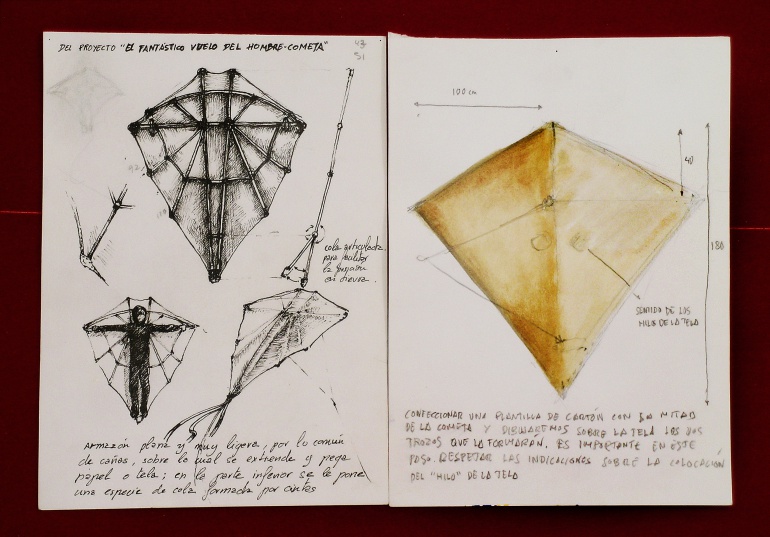 DEL PROYECTO "EL FANTÁSTICO VUELO DEL HOMBRE-COMETA"
cola articulada
para facilitar
la
en tierra.
Armazón plana y muy ligera, por lo común
de cañas, sobre la cual se extiende y pega
papel o tela; en la parte inferior se le pone
una especie de cola formada por cintas
100 cm
40
180
SENTIDO DE LOS
HILO DE LA TELA
CONFECCIONAR UNA PLANTILLA DE CARTÓN CON LA MITAD
DE LA COMETA Y DIBUJAREMOS SOBRE LA TELA LOS DOS
TROZOS QUE LA FORMARÁN. ES IMPORTANTE EN ESTE
PASO RESPETAR LAS INDICACIONES SOBRE LA COLOCACIÓN
DEL "HILO" DE LA TELA